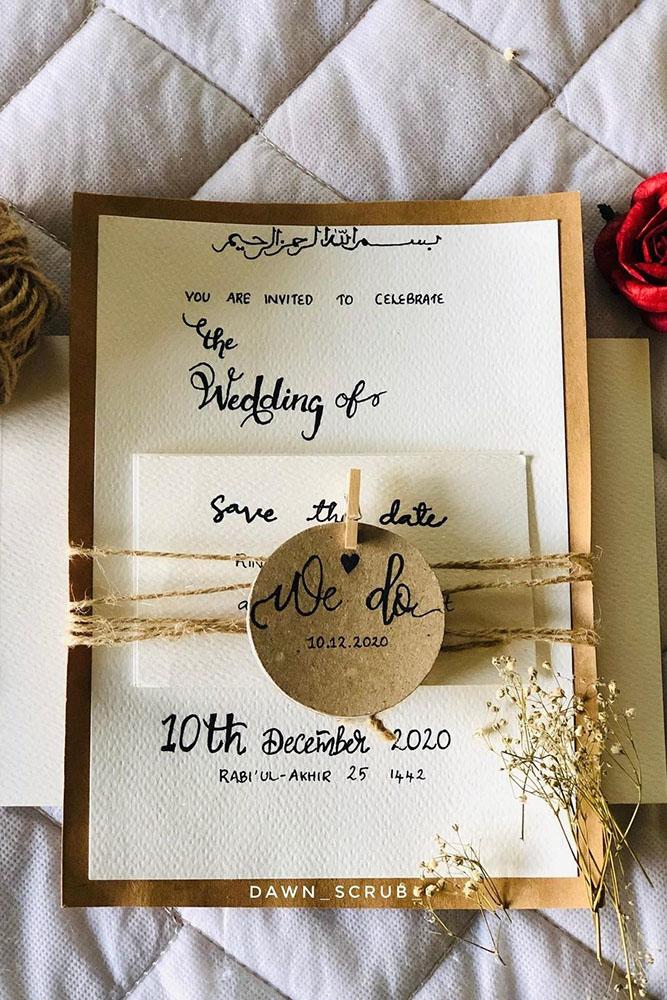 بسم الله الرحمن الرحيم
YOU ARE INVITED TO CELEBRATE
the
Wedding of
Save the date
We do
10.12.2020
10th December 2020
RABI'UL-AKHIR 25 1442
DAWN_SCRUB_